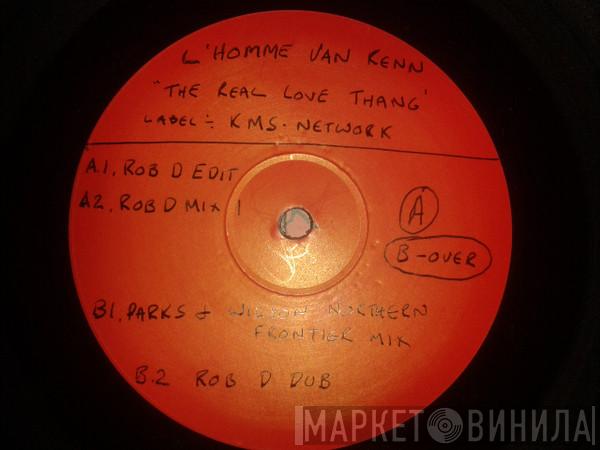 L'HOMME VAN RENN
"THE REAL LOVE THANG'
LABEL:- KMS-NETWORK
A.1, ROB D EDIT
A2, ROB D MIX 1
A
B-OVER
B1, PARKS & WILSON NORTHERN
FRONTIER MIX
B.2 ROB D DUB
МАРКЕТ ВИНИЛА